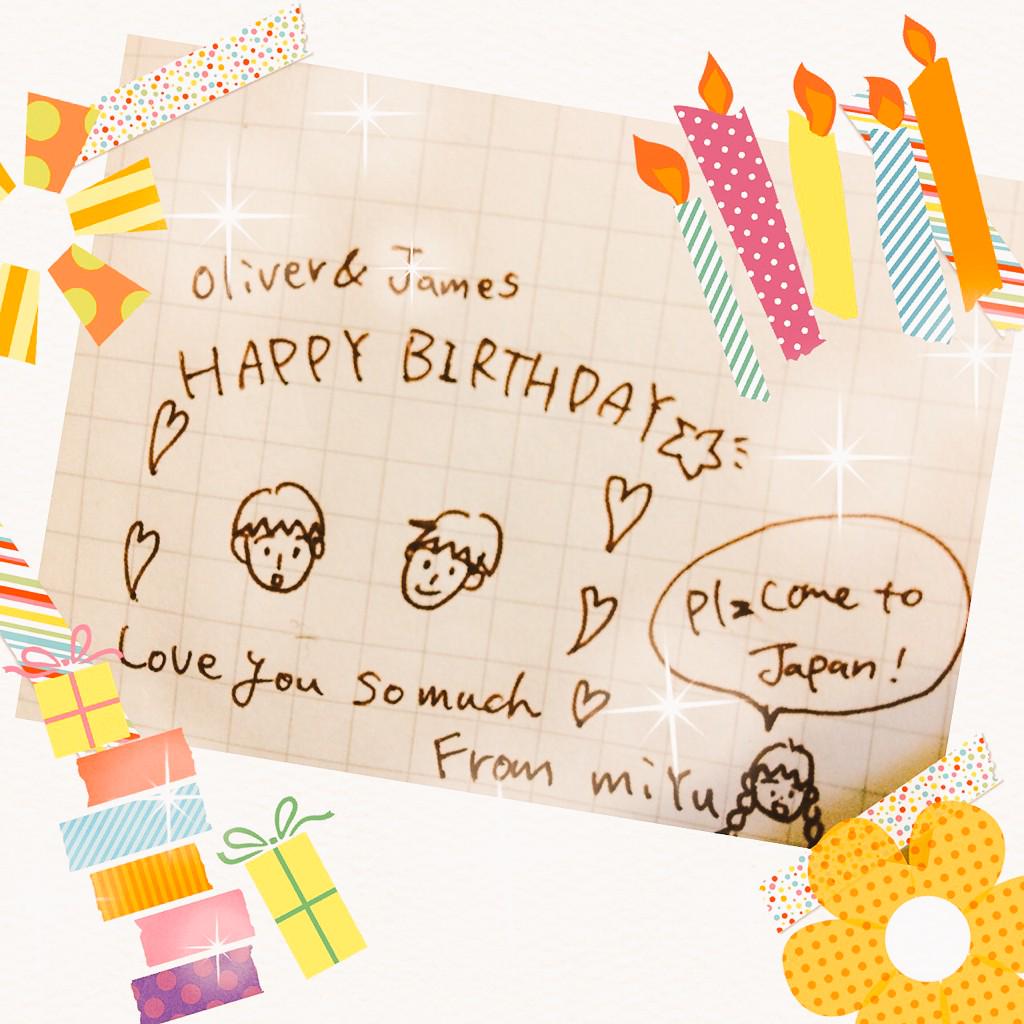 oliver & James
HAPPY BIRTHDAY
Love you so much
From miYu
plz come to
Japan!